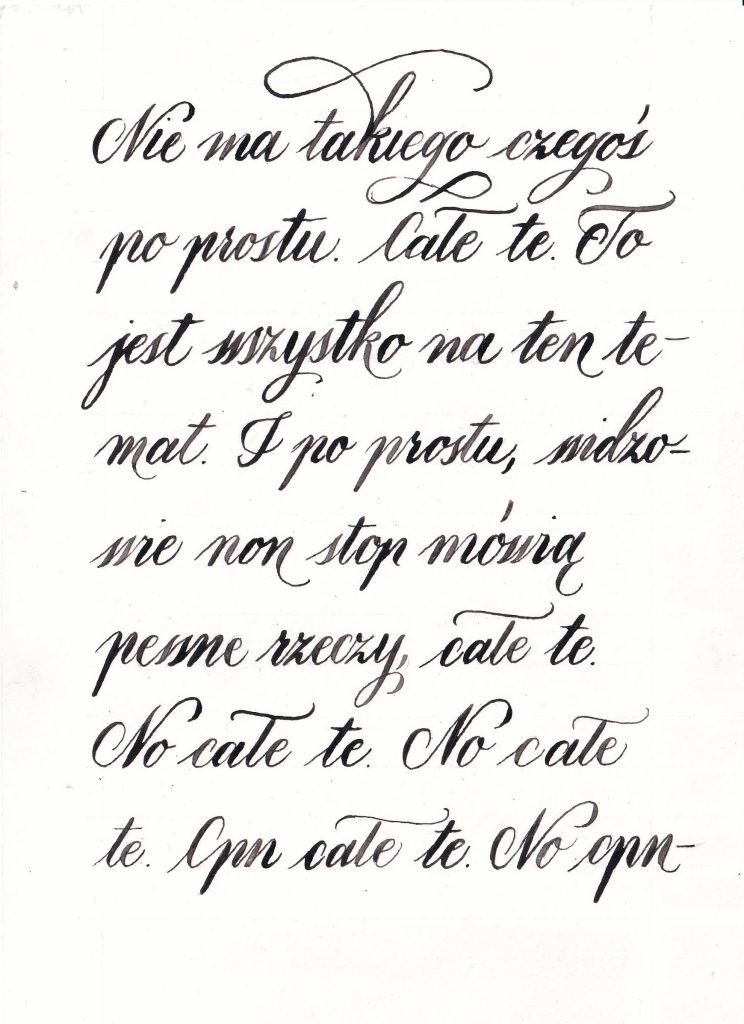 Nie ma takiego czegoś
po prostu. Całe te. To
jest wszystko na ten te-
mat. I po prostu, widzo-
wie non stop mówią
pewne rzeczy, całe te.
No całe te. No całe
te. Cpn całe te. No cpn-